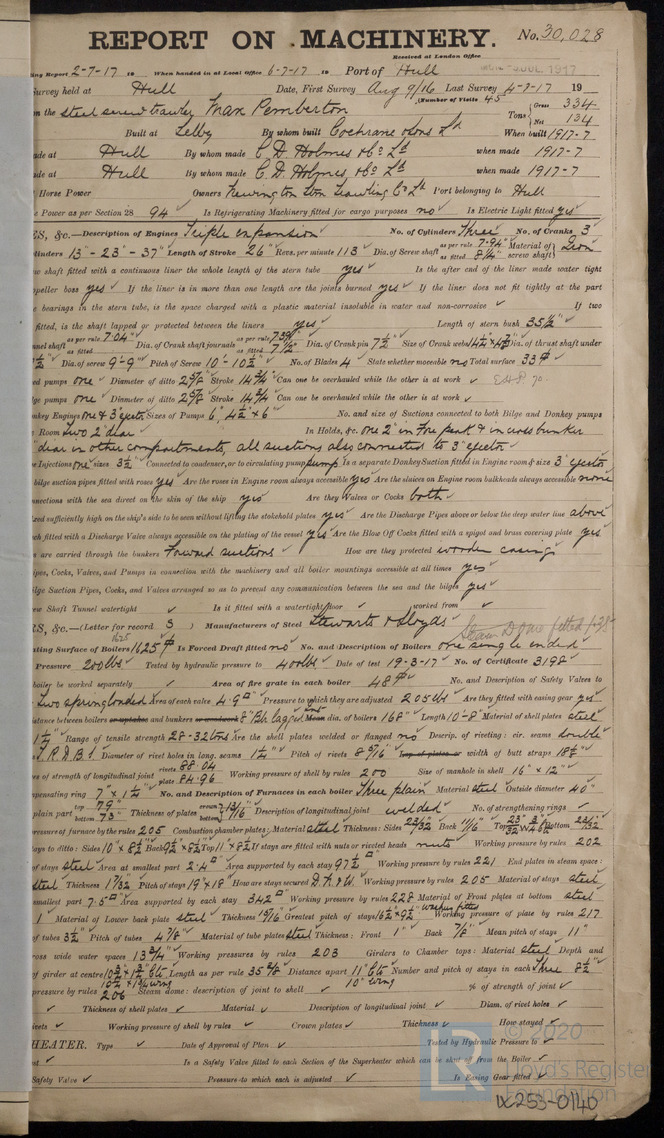 REPORT ON MACHINERY. No. 30,028
Received at London Office
ing Report 2-7-17 19 When handed in at Local Office 6-7-17 19 Port of Hull
Survey held at Hull Date, First Survey Aug 9/16 Last Survey 4-7-17 19
(Number of Visits 45
on the steel screw trawler Max Pemberton Tons Gross 334 Net 134
Built at Selby By whom built Cochrane & Sons Ld When built 1917-7
ade at Hull By whom made C. D. Holmes & Co Ld when made 1917-7
ade at Hull By whom made C. D. Holmes & Co Ld when made 1917-7
Horse Power Owners Newington Stm Trawling Co Ld Port belonging to Hull
e Power as per Section 28 94 Is Refrigerating Machinery fitted for cargo purposes no Is Electric Light fitted yes
ES, &c.—Description of Engines Triple expansion No. of Cylinders Three No. of Cranks 3
ylinders 13" - 23" - 37" Length of Stroke 26" Revs. per minute 113 Dia. of Screw shaft as per rule 7.94" as fitted 8 1/4" Material of screw shaft Iron
w shaft fitted with a continuous liner the whole length of the stern tube yes Is the after end of the liner made water tight
opeller boss yes If the liner is in more than one length are the joints burned yes If the liner does not fit tightly at the part
e bearings in the stern tube, is the space charged with a plastic material insoluble in water and non-corrosive ✓ If two
fitted, is the shaft lapped or protected between the liners yes Length of stern bush 35 1/2"
nnel shaft as per rule 7.04" as fitted Dia. of Crank shaft journals as per rule 7.39" as fitted 7 1/2" Dia. of Crank pin 7 1/2" Size of Crank webs Dia. of thrust shaft under
Dia. of screw 9'-9" Pitch of Screw 10'-10 1/2" No. of Blades 4 State whether moveable no Total surface 33
ed pumps one Diameter of ditto 2 5/8" Stroke 14 3/4" Can one be overhauled while the other is at work ✓
lge pumps one Diameter of ditto 2 5/8" Stroke 14 3/4" Can one be overhauled while the other is at work ✓
nkey Engines one & 3" ejector Sizes of Pumps 6" 4 1/2" x 6" No. and size of Suctions connected to both Bilge and Donkey pumps
Room Two 2" diar In Holds, &c. one 2" in Fore peak & in cross bunker
" diar in other compartments, all suctions also connected to 3" ejector
er Injections one sizes 3 1/2" Connected to condenser, or to circulating pump pump Is a separate Donkey Suction fitted in Engine room & size 3" ejector
bilge suction pipes fitted with roses yes Are the roses in Engine room always accessible yes Are the sluices on Engine room bulkheads always accessible none
nnections with the sea direct on the skin of the ship yes Are they Valves or Cocks both
xed sufficiently high on the ship's side to be seen without lifting the stokehold plates yes Are the Discharge Pipes above or below the deep water line above
ch fitted with a Discharge Valve always accessible on the plating of the vessel yes Are the Blow Off Cocks fitted with a spigot and brass covering plate yes
s are carried through the bunkers Forward suctions How are they protected wooden casing
Pipes, Cocks, Valves, and Pumps in connection with the machinery and all boiler mountings accessible at all times yes
ilge Suction Pipes, Cocks, and Valves arranged so as to prevent any communication between the sea and the bilges yes
ew Shaft Tunnel watertight ✓ Is it fitted with a watertight door ✓ worked from ✓
RS, &c.—(Letter for record S ) Manufacturers of Steel Stewarts & Lloyds Steam Dome fitted
ating Surface of Boilers 1625 Is Forced Draft fitted no No. and Description of Boilers one single ended
Pressure 200 lbs Tested by hydraulic pressure to 400 lbs Date of test 19-3-17 No. of Certificate 3198
boiler be worked separately ✓ Area of fire grate in each boiler 48 No. and Description of Safety Valves to
Two spring loaded Area of each valve 4.9 Pressure to which they are adjusted 205 lbs Are they fitted with easing gear yes
istance between boilers or uptakes and bunkers or woodwork 8" Blr lagged Mean dia. of boilers 168" Length 10'-8" Material of shell plates steel
Range of tensile strength 28-32 tons Are the shell plates welded or flanged no Descrip. of riveting: cir. seams double
T. R. D. B. S. Diameter of rivet holes in long. seams 1 1/4" Pitch of rivets 8 9/16" Lap of plates or width of butt straps 18 1/2"
es of strength of longitudinal joint rivets 88.04 plate 84.96 Working pressure of shell by rules 200 Size of manhole in shell 16" x 12"
mpensating ring 7" x 1 1/4" No. and Description of Furnaces in each boiler Three plain Material steel Outside diameter 40"
plain part top 79" bottom 73" Thickness of plates crown bottom 13/16" Description of longitudinal joint welded No. of strengthening rings ✓
pressure of furnace by the rules 205 Combustion chamber plates: Material steel Thickness: Sides 23/32" Back 11/16" Top 23/32" Bottom 23/32"
ays to ditto: Sides 10" x 8 1/2" Back 9 1/2" x 8 1/2" Top 11" x 8 1/2" If stays are fitted with nuts or riveted heads nuts Working pressure by rules 202
of stays steel Area at smallest part 2.4 Area supported by each stay 97 1/2 Working pressure by rules 221 End plates in steam space:
steel Thickness 1 7/32" Pitch of stays 19" x 18" How are stays secured D.N. & W. Working pressure by rules 205 Material of stays steel
smallest part 7.5 Area supported by each stay 342 Working pressure by rules 228 Material of Front plates at bottom steel
1 Material of Lower back plate steel Thickness 15/16" Greatest pitch of stays 16 1/2" x 9 1/2" washers fitted Working pressure of plate by rules 217
of tubes 3 1/2" Pitch of tubes 4 7/8" Material of tube plates steel Thickness: Front 1" Back 7/8" Mean pitch of stays 11"
cross wide water spaces 13 3/4" Working pressures by rules 203 Girders to Chamber tops: Material steel Depth and
of girder at centre Length as per rule 35 Distance apart 11" Ctr 10" Wing Number and pitch of stays in each Three 8 1/2"
pressure by rules 206 Steam dome: description of joint to shell ✓ % of strength of joint ✓
Thickness of shell plates ✓ Material ✓ Description of longitudinal joint ✓ Diam. of rivet holes ✓
ivets ✓ Working pressure of shell by rules ✓ Crown plates ✓ Thickness ✓ How stayed ✓
HEATER. Type ✓ Date of Approval of Plan ✓ Tested by Hydraulic Pressure to ✓
Is a Safety Valve fitted to each Section of the Superheater which can be shut off from the Boiler ✓
Safety Valve ✓ Pressure to which each is adjusted ✓ Is Easing Gear fitted ✓
© 2020
Lloyd's Register
Foundation
LR
W253-0140